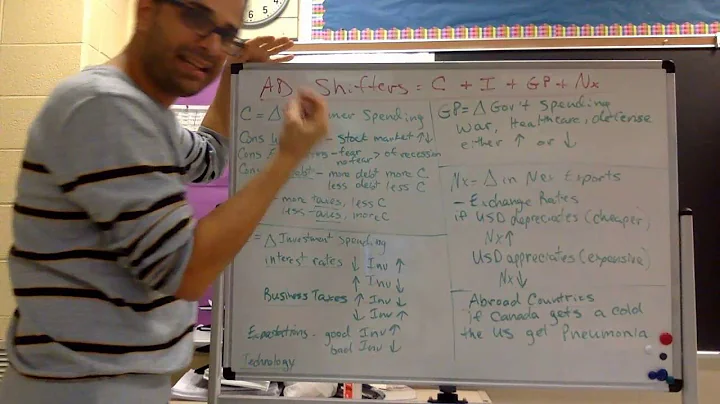 AD Shifters = C + I + GP + Nx
C = Δ Spending
Cons - stock market ↑↓
Cons - fear > of recession
no fear
Cons debt - more debt more C
less debt less C
- more taxes, less C
less taxes, more C
= Δ Investment Spending
interest rates ↓ Inv ↑
↑ Inv ↓
Business Taxes ↑ Inv ↓
↓ Inv ↑
Expectations - good Inv ↑
bad Inv ↓
Technology
GP = Δ Gov't Spending
War, Healthcare, defense
either ↑ or ↓
Nx = Δ in Nex Exports
- Exchange Rates
if USD depreciates (cheaper)
Nx ↑
USD appreciates (expensive)
Nx ↓
Abroad Countries
if Canada gets a cold
the US get Pneumonia